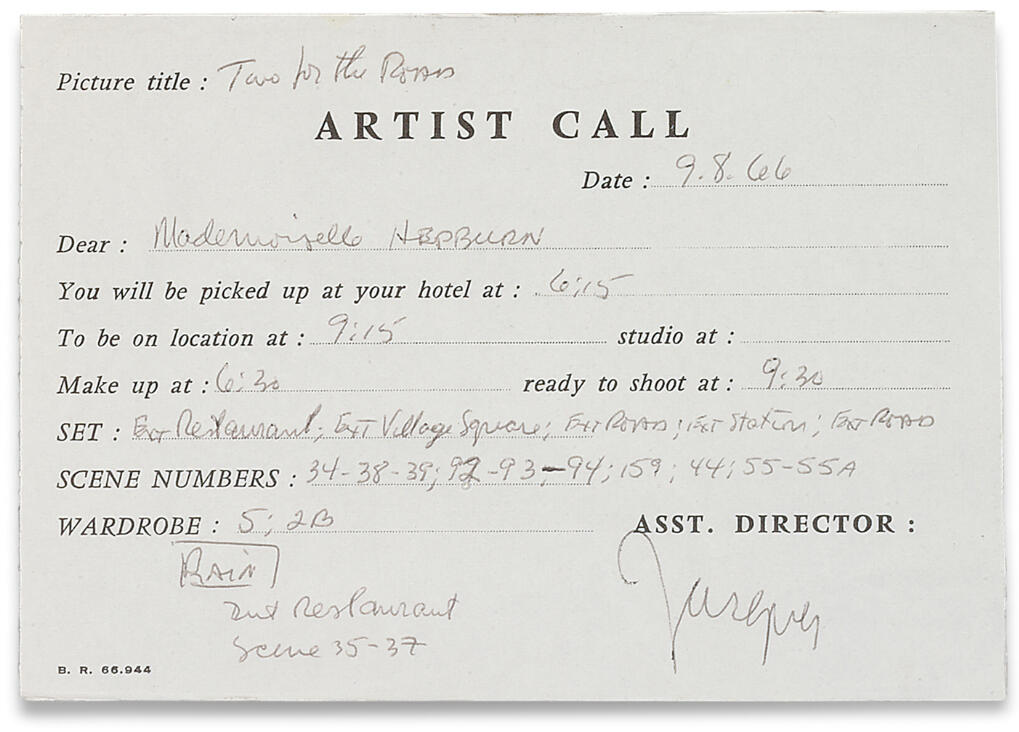 Picture title : Two for the Road
ARTIST CALL
Date : 9.8.66
Dear : Mademoiselle HEPBURN
You will be picked up at your hotel at : 6:15
To be on location at : 9:15 studio at :
Make up at : 6:30 ready to shoot at : 9:30
SET : Ext Restaurant; EXT Village Square; Ext ROAD; Ext Station; Ext ROAD
SCENE NUMBERS : 34-38-39; 92-93-94; 159; 44; 55-55A
WARDROBE : 5; 2B ASST. DIRECTOR :
RAIN
Int Restaurant
Scene 35-37
B. R. 66.944